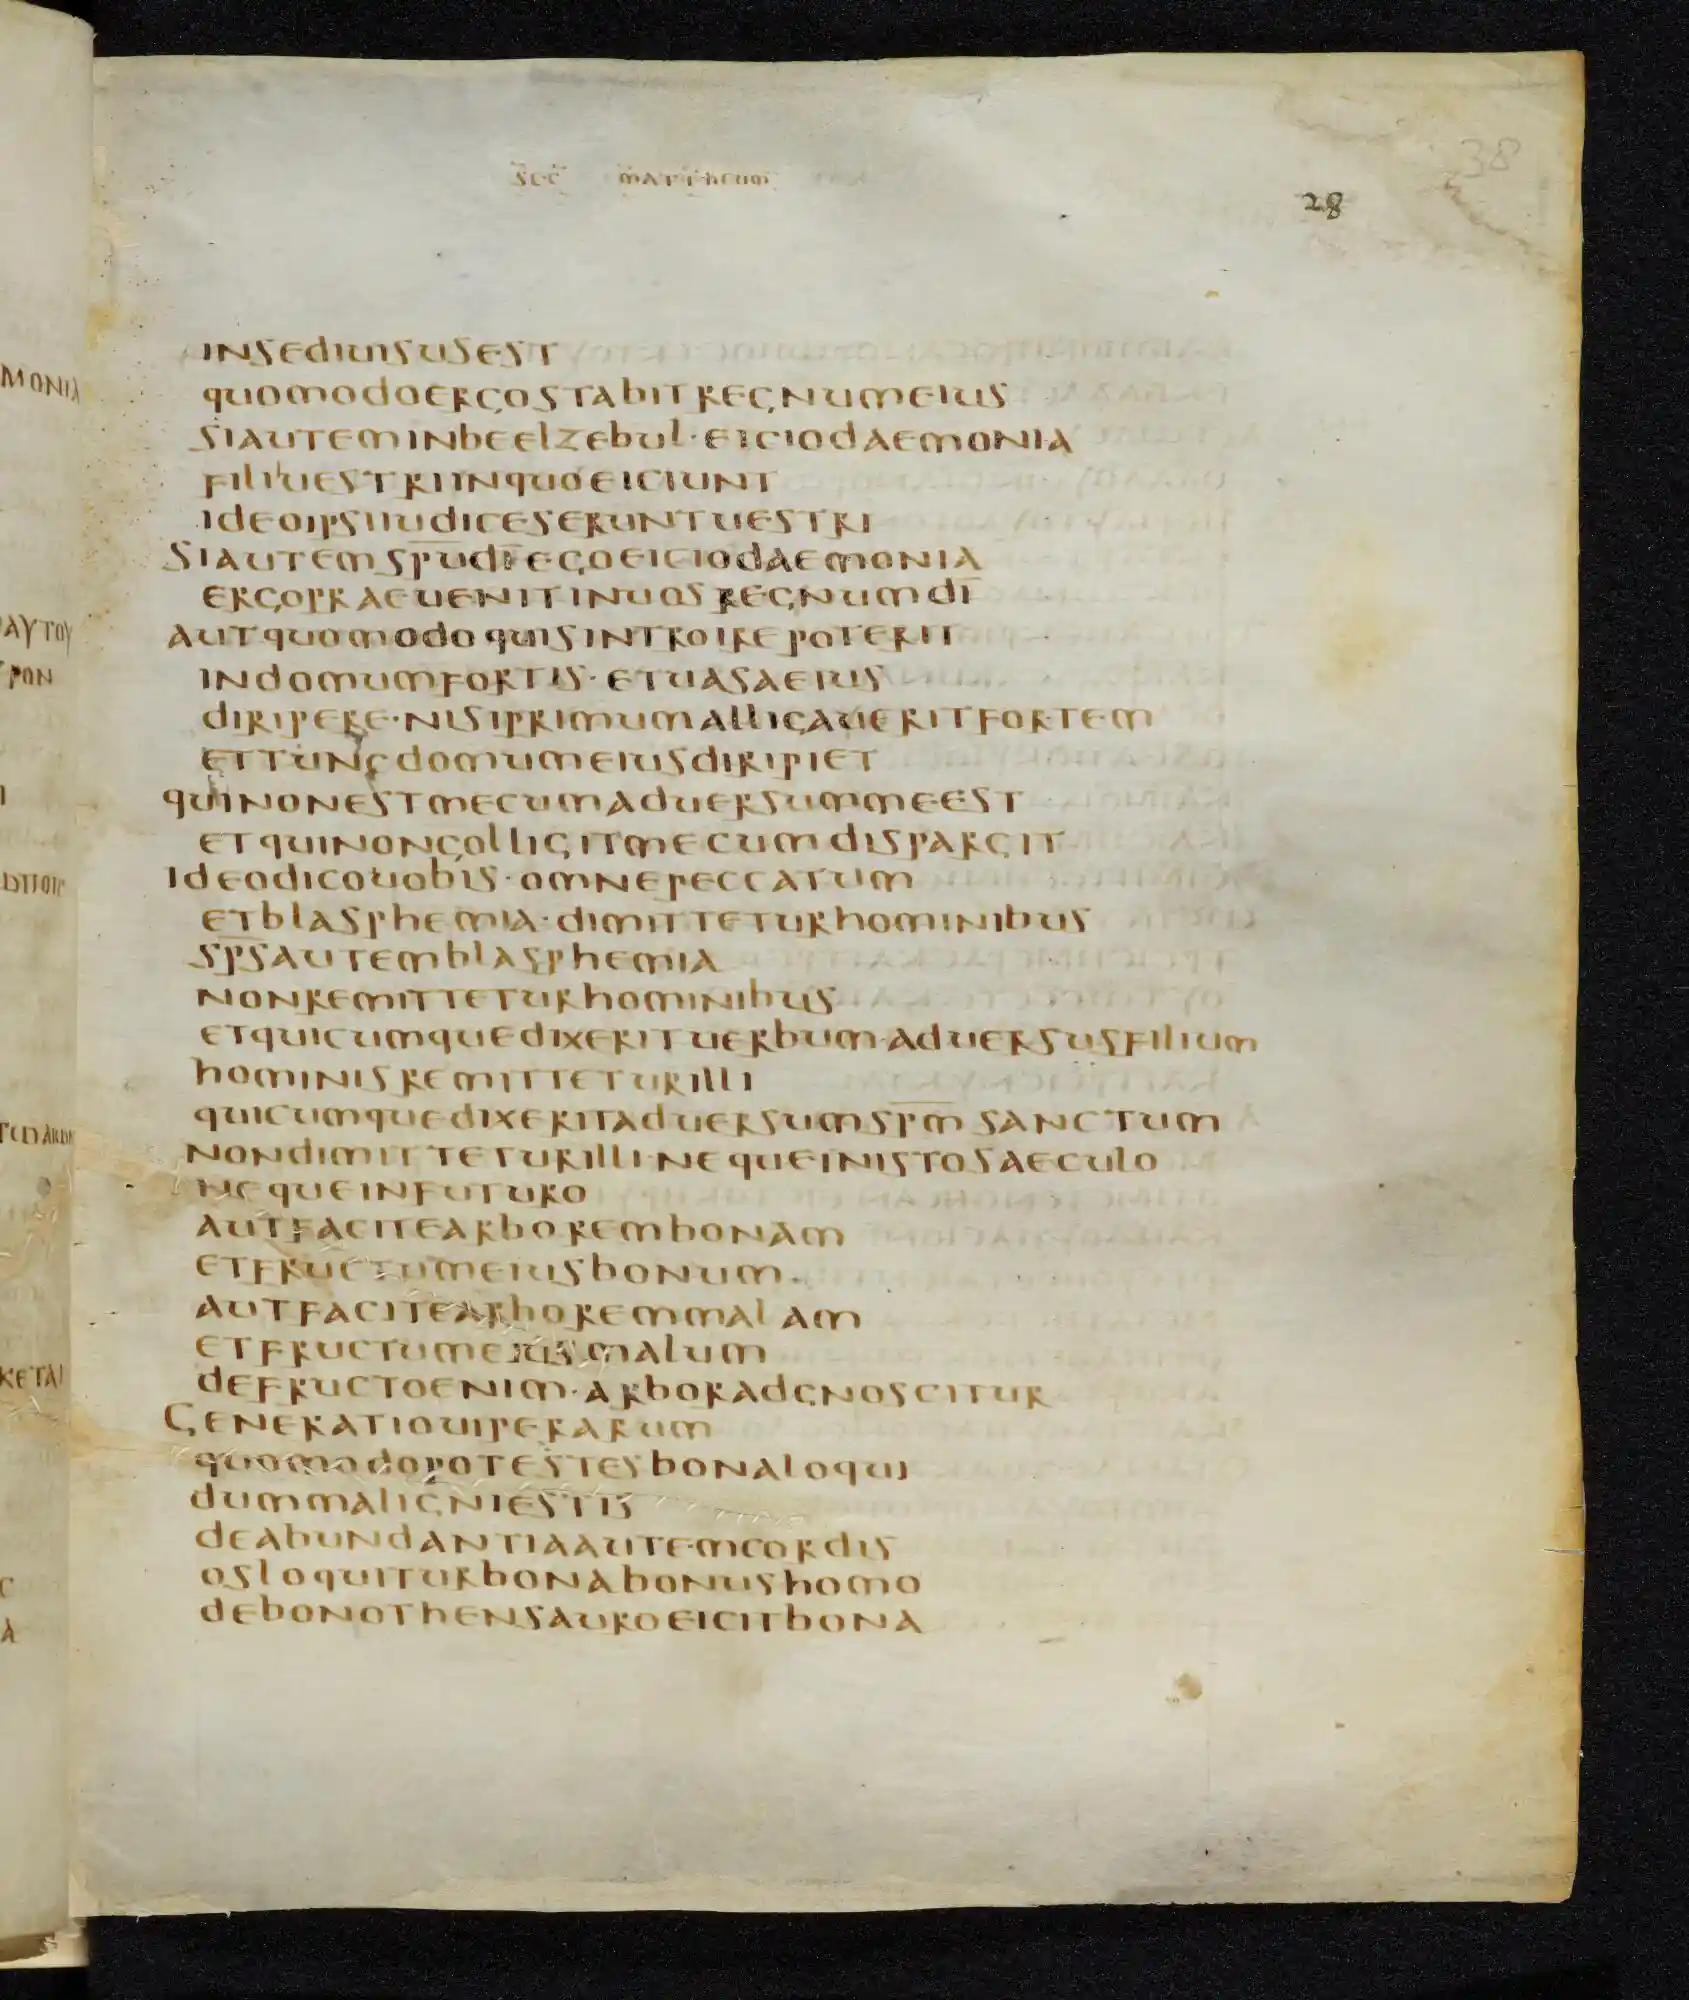 SEC MATTHEUM
38
28
INSEDIUISUSEST
QUOMODOERGOSTABITREGNUMEIUS
SIAUTEMINBEELZEBUL·EICIODAEMONIA
FILIUESTRIINQUOEICIUNT
IDEOIPSIIUDICESERUNTUESTRI
SIAUTEMSPUDIEGOEICIODAEMONIA
ERGOPRAEUENITINUOSREGNUMDI
AUTQUOMODOQUISINTROIREPOTERIT
INDOMUMFORTIS·ETUASAEIUS
DIRIPERE·NISIPRIMUMALLIGAUERITFORTEM
ETTUNCDOMUMEIUSDIRIPIET
QUINONESTMECUMADUERSUMMEEST
ETQUINONCOLLIGITMECUMDISPARGIT
IDEODICOUOBIS·OMNEPECCATUM
ETBLASPHEMIA·DIMITTETURHOMINIBUS
SPSAUTEMBLASPHEMIA
NONREMITTETURHOMINIBUS
ETQUICUMQUEDIXERITUERBUM·ADUERSUSFILIUM
HOMINISREMITTETURILLI
QUICUMQUEDIXERITADUERSUMSPM SANCTUM
NONDIMITTETURILLI·NEQUEINISTOSAECULO
NEQUEINFUTURO
AUTFACITEARBOREMBONAM
ETFRUCTUMEIUSBONUM·
AUTFACITEARBOREMMALAM
ETFRUCTUMEIUSMALUM
DEFRUCTOENIM·ARBORADGNOSCITUR
GENERATIOUIPERARUM
QUOMODOPOTESTESBONALOQUI
DUMMALIGNIESTIS
DEABUNDANTIAAUTEMCORDIS
OSLOQUITURBONABONUSHOMO
DEBONOTHENSAUROEICITBONA